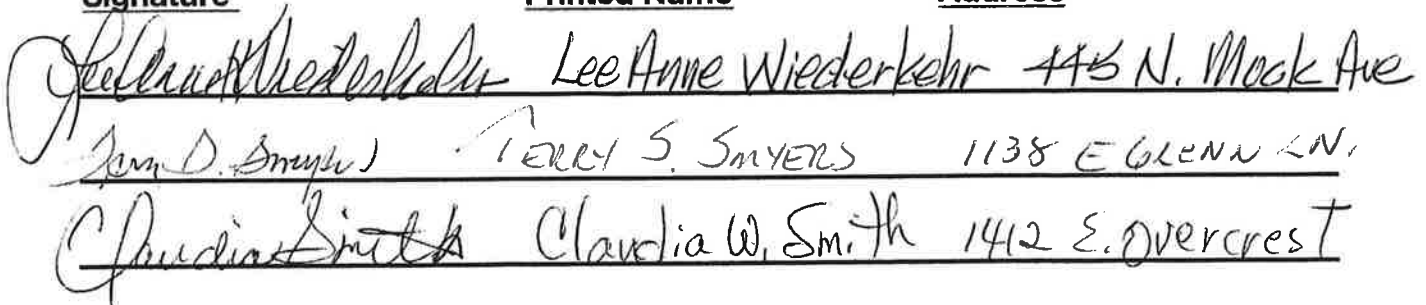 Signature Printed Name Address
LeeAnne Wiederkehr LeeAnne Wiederkehr 445 N. Mock Ave
Terry S. Smyers TERRY S. SMYERS 1138 E GLENN LN.
Claudia Smith Claudia W. Smith 1412 E. Overcrest